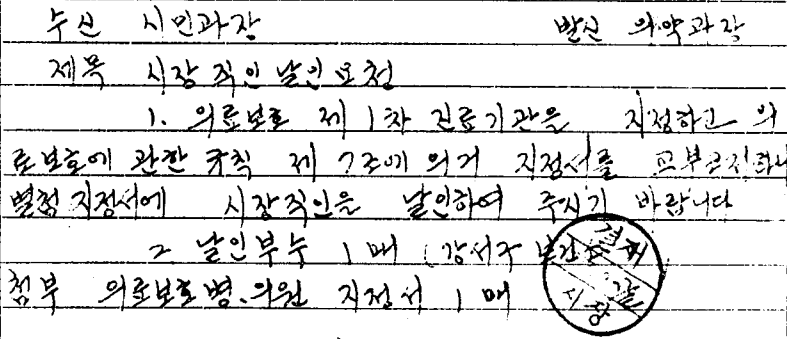 수신 시민과장 발신 의약과장
제목 시장 직인 날인 요청
1. 의료보호 제1차 진료기관을 지정하고 의
료보호에 관한 규칙 제7조에 의거 지정서를 교부코자하니
별첨 지정서에 시장직인을 날인하여 주시기 바랍니다
2. 날인부수 1매 (강서구 보건소
첨부 의료보호병.의원 지정서 1매
결재
시장